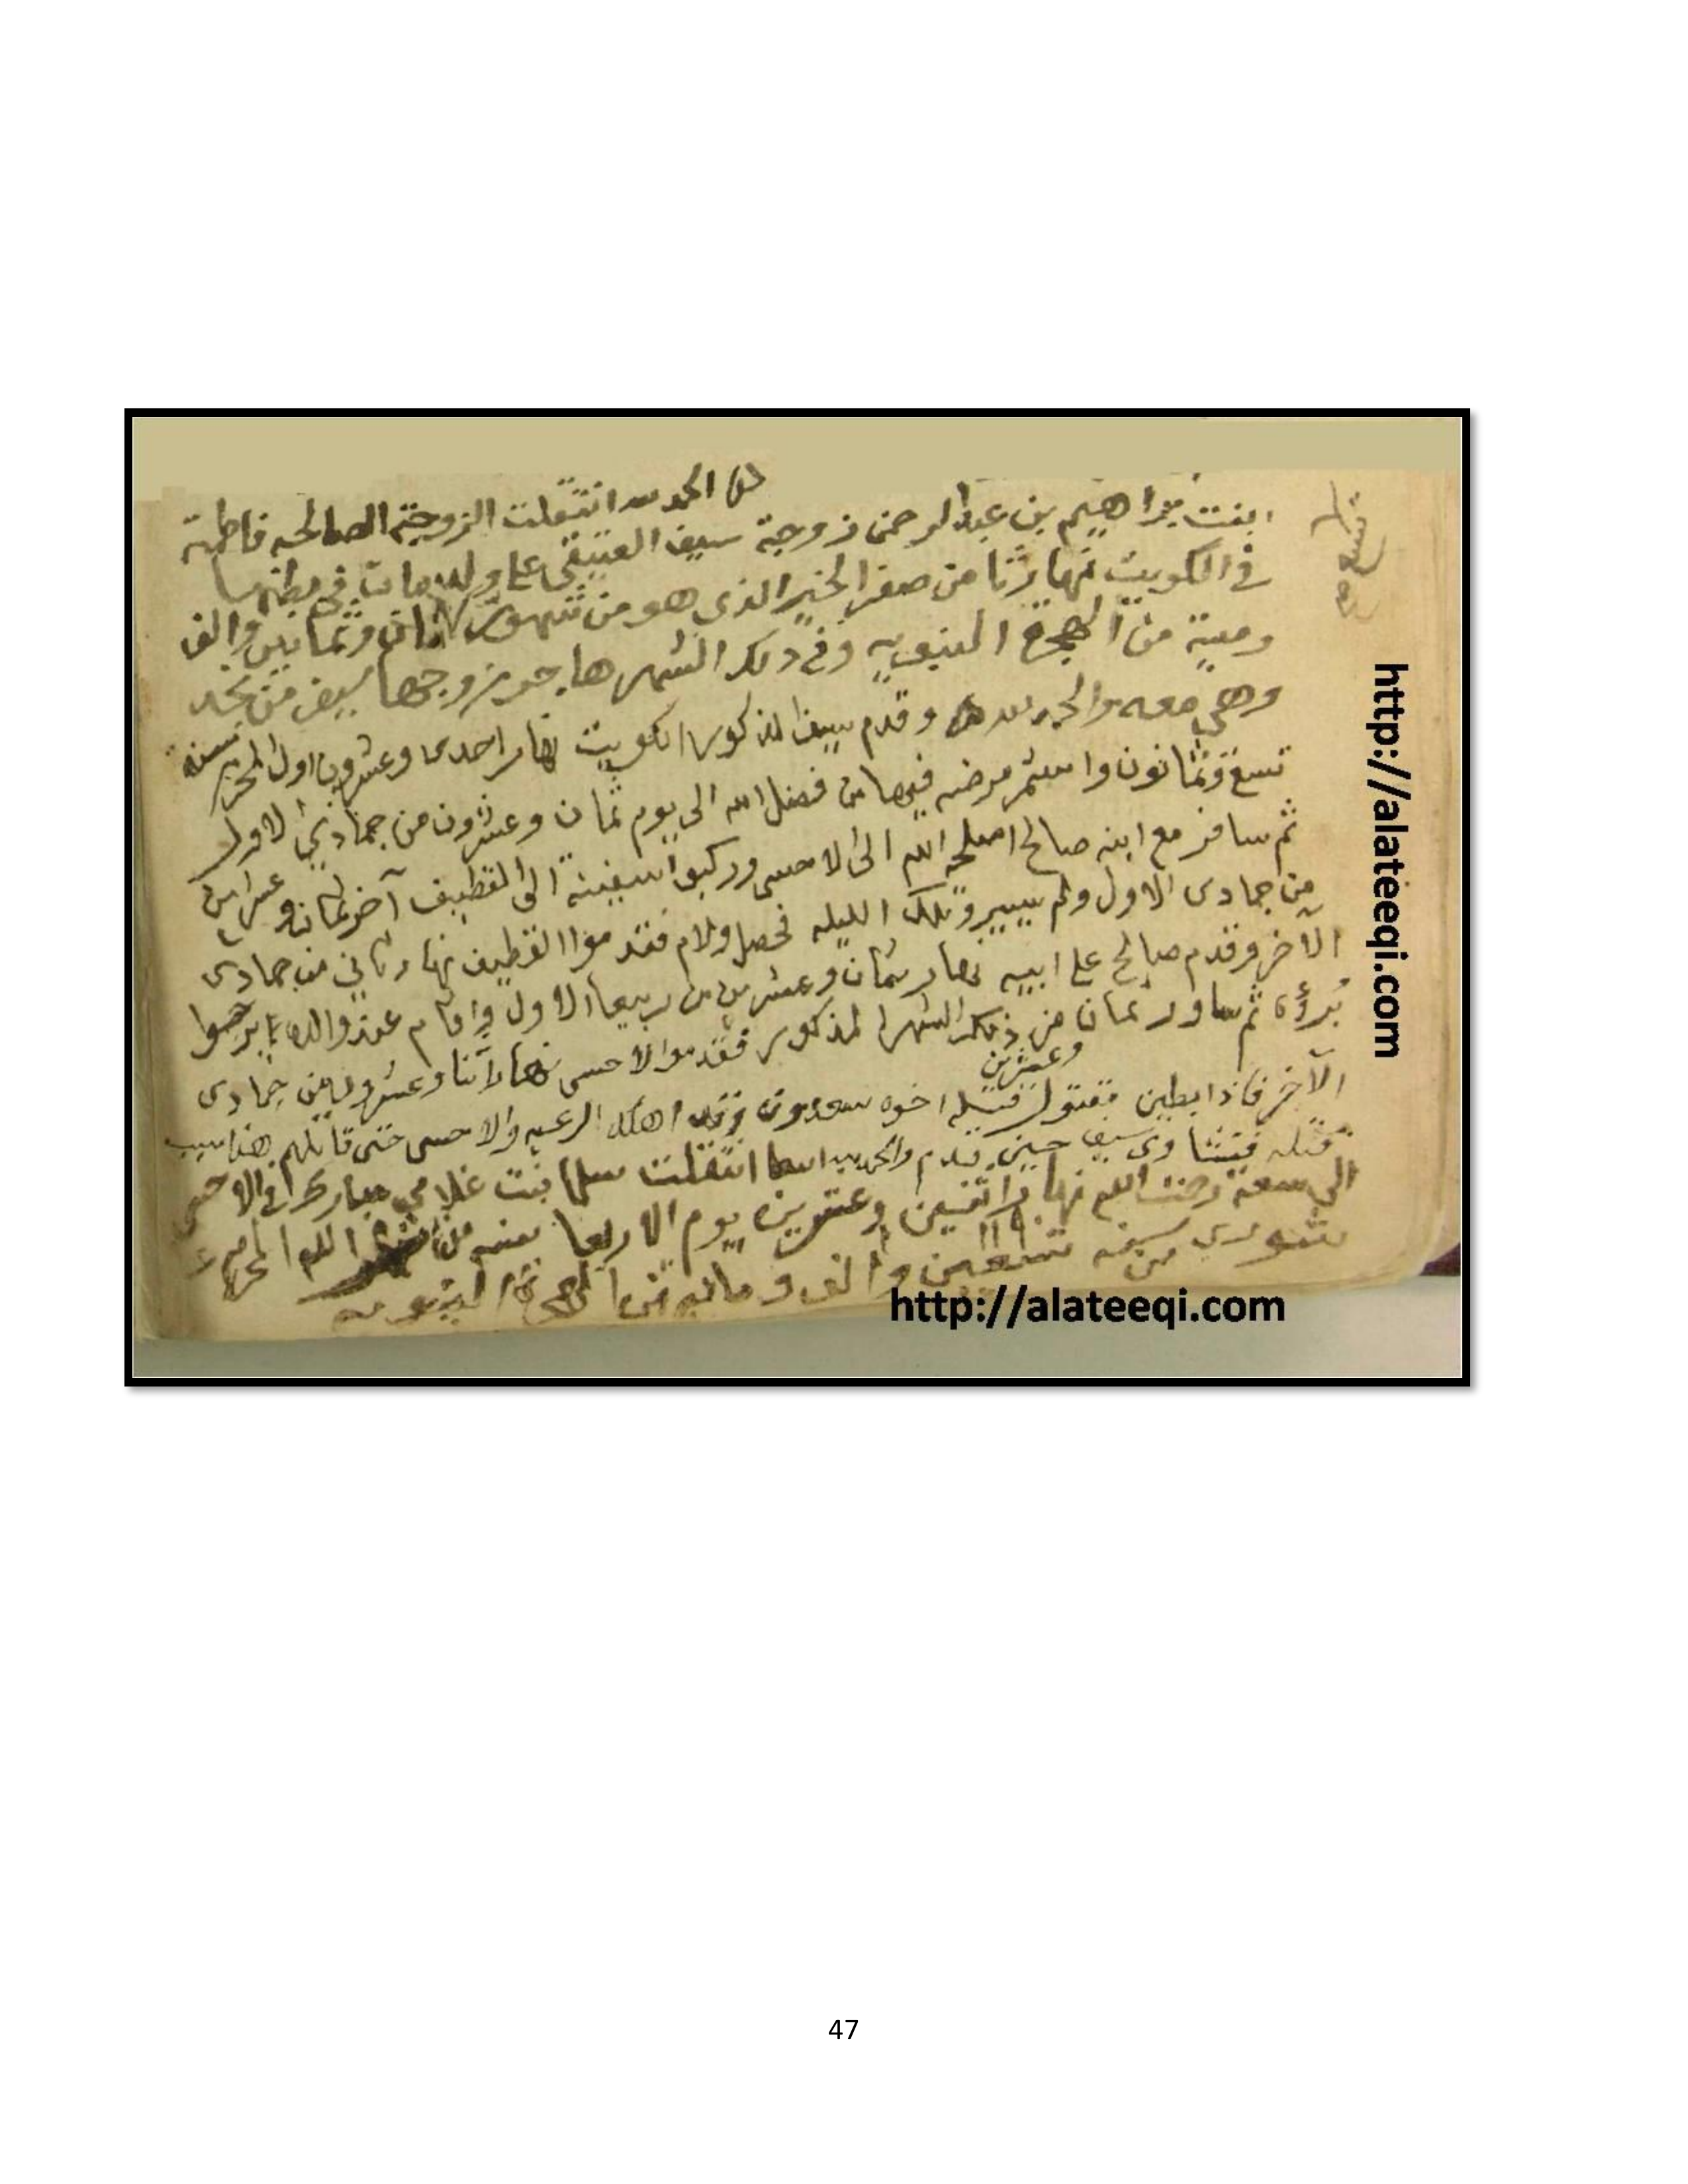 الحمد لله انتقلت الزوجة الصالحه فاطمة
ابنت ابراهيم بن عبدالرحمن زوجة سيف العتيقي على ولد مات في بطنها
في الكويت نهار ثنا من صفر الخير الذي هو من شهور ثمان وثمانين والف
وميه من الهجرة النبويه وفي ذلك الشهر هاجر زوجها سيف من نجد
وهي معه والحمد لله وقدم سيف المذكور الكويت نهار احدى وعشرون اول المحرم سنة
تسع وثمانون واستمر مرضه فيها من فضل الله الى يوم ثمان وعشرون من جمادي الاول
ثم سافر مع ابنه صالح اصلحه الله الى الاحسى وركبو السفينة الى القطيف آخر ثمانيه وعشرين
من جمادى الاول ولم يسير وتلك الليله فحصل ولام فقدموا القطيف نهار ثاني من جمادى
الآخر وقدم صالح على ابيه نهار ثمان وعشرين من ربيع الاول واقام عند والده يرجوا
برؤه ثم سافر ثمان وعشرين من ذلك الشهر المذكور فقدموا الاحسى نهار آثنا وعشرون من جمادى
الآخر فاذا بطين مقتول قتيله اخوه سعدون اهل الرعيه والاحسى حتى قاتلهم هذا سبب
قتله سيف حين قدم والحمد لله انتقلت سلما بنت غلامي مبارك في الاحسى
الى سعة رحمت الله نهار اثنين وعشرين يوم الاربعا من شهر الله المحرم
شهور سنه تسعين والف ومايه من الهجرة النبويه
http://alateeqi.com
http://alateeqi.com
47